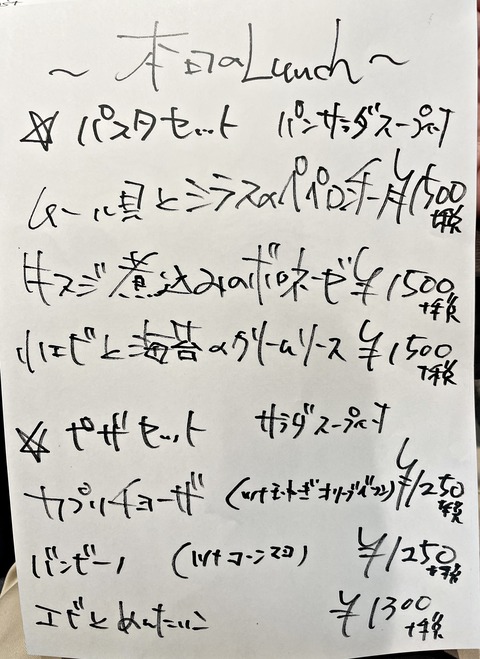 ～ 本日のLunch ～
☆ パスタセット パンサラダスープ付
ムール貝とシラスのペペロンチーノ ¥1500 +税
牛スジ煮込みのボロネーゼ ¥1500 +税
小エビと海苔のクリームソース ¥1500 +税
☆ ピザセット サラダスープ付
カプリチョーザ (ツナ玉ネギオリーブ) ¥1250 +税
バンビーノ (ツナコーンマヨ) ¥1250 +税
エビとめんたいこ ¥1300 +税